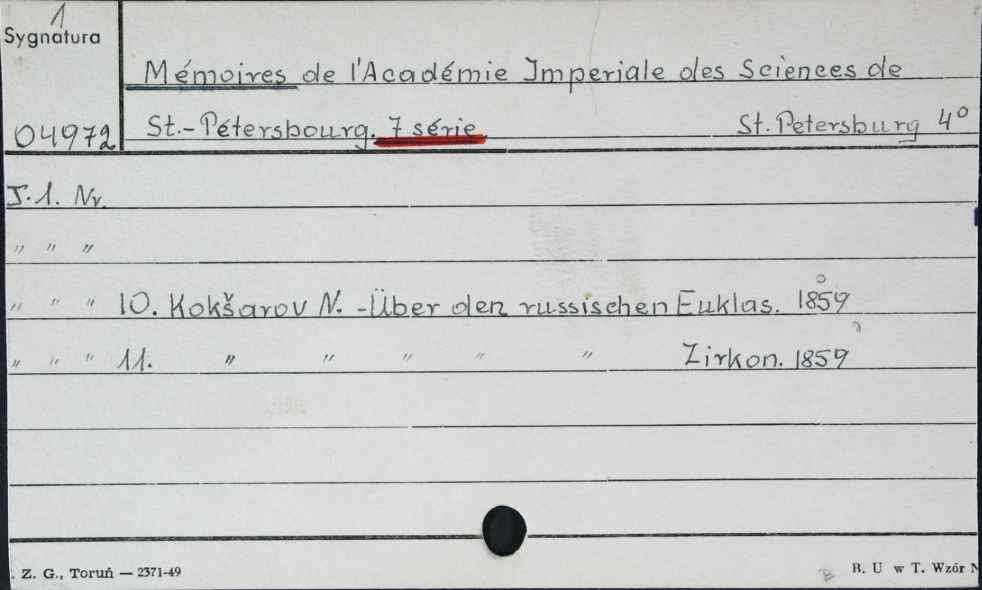 1
Sygnatura
Mémoires de l'Académie Imperiale des Sciences de
04972 St.-Pétersbourg. 7 série St. Petersburg 4°
T. 1. Nr.
" " "
" " " 10. Kokšarov N. - Über den russischen Euklas. 1859
" " " 11. " " " " " Zirkon. 1859
. Z. G., Toruń — 2371-49 B B. U w T. Wzór N